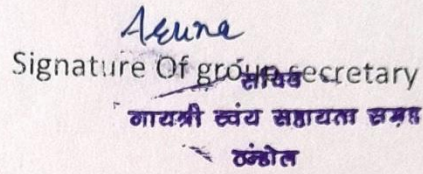 Aruna
Signature Of group secretary
सचिव
गायत्री स्वंय सहायता समूह
ठंडोल